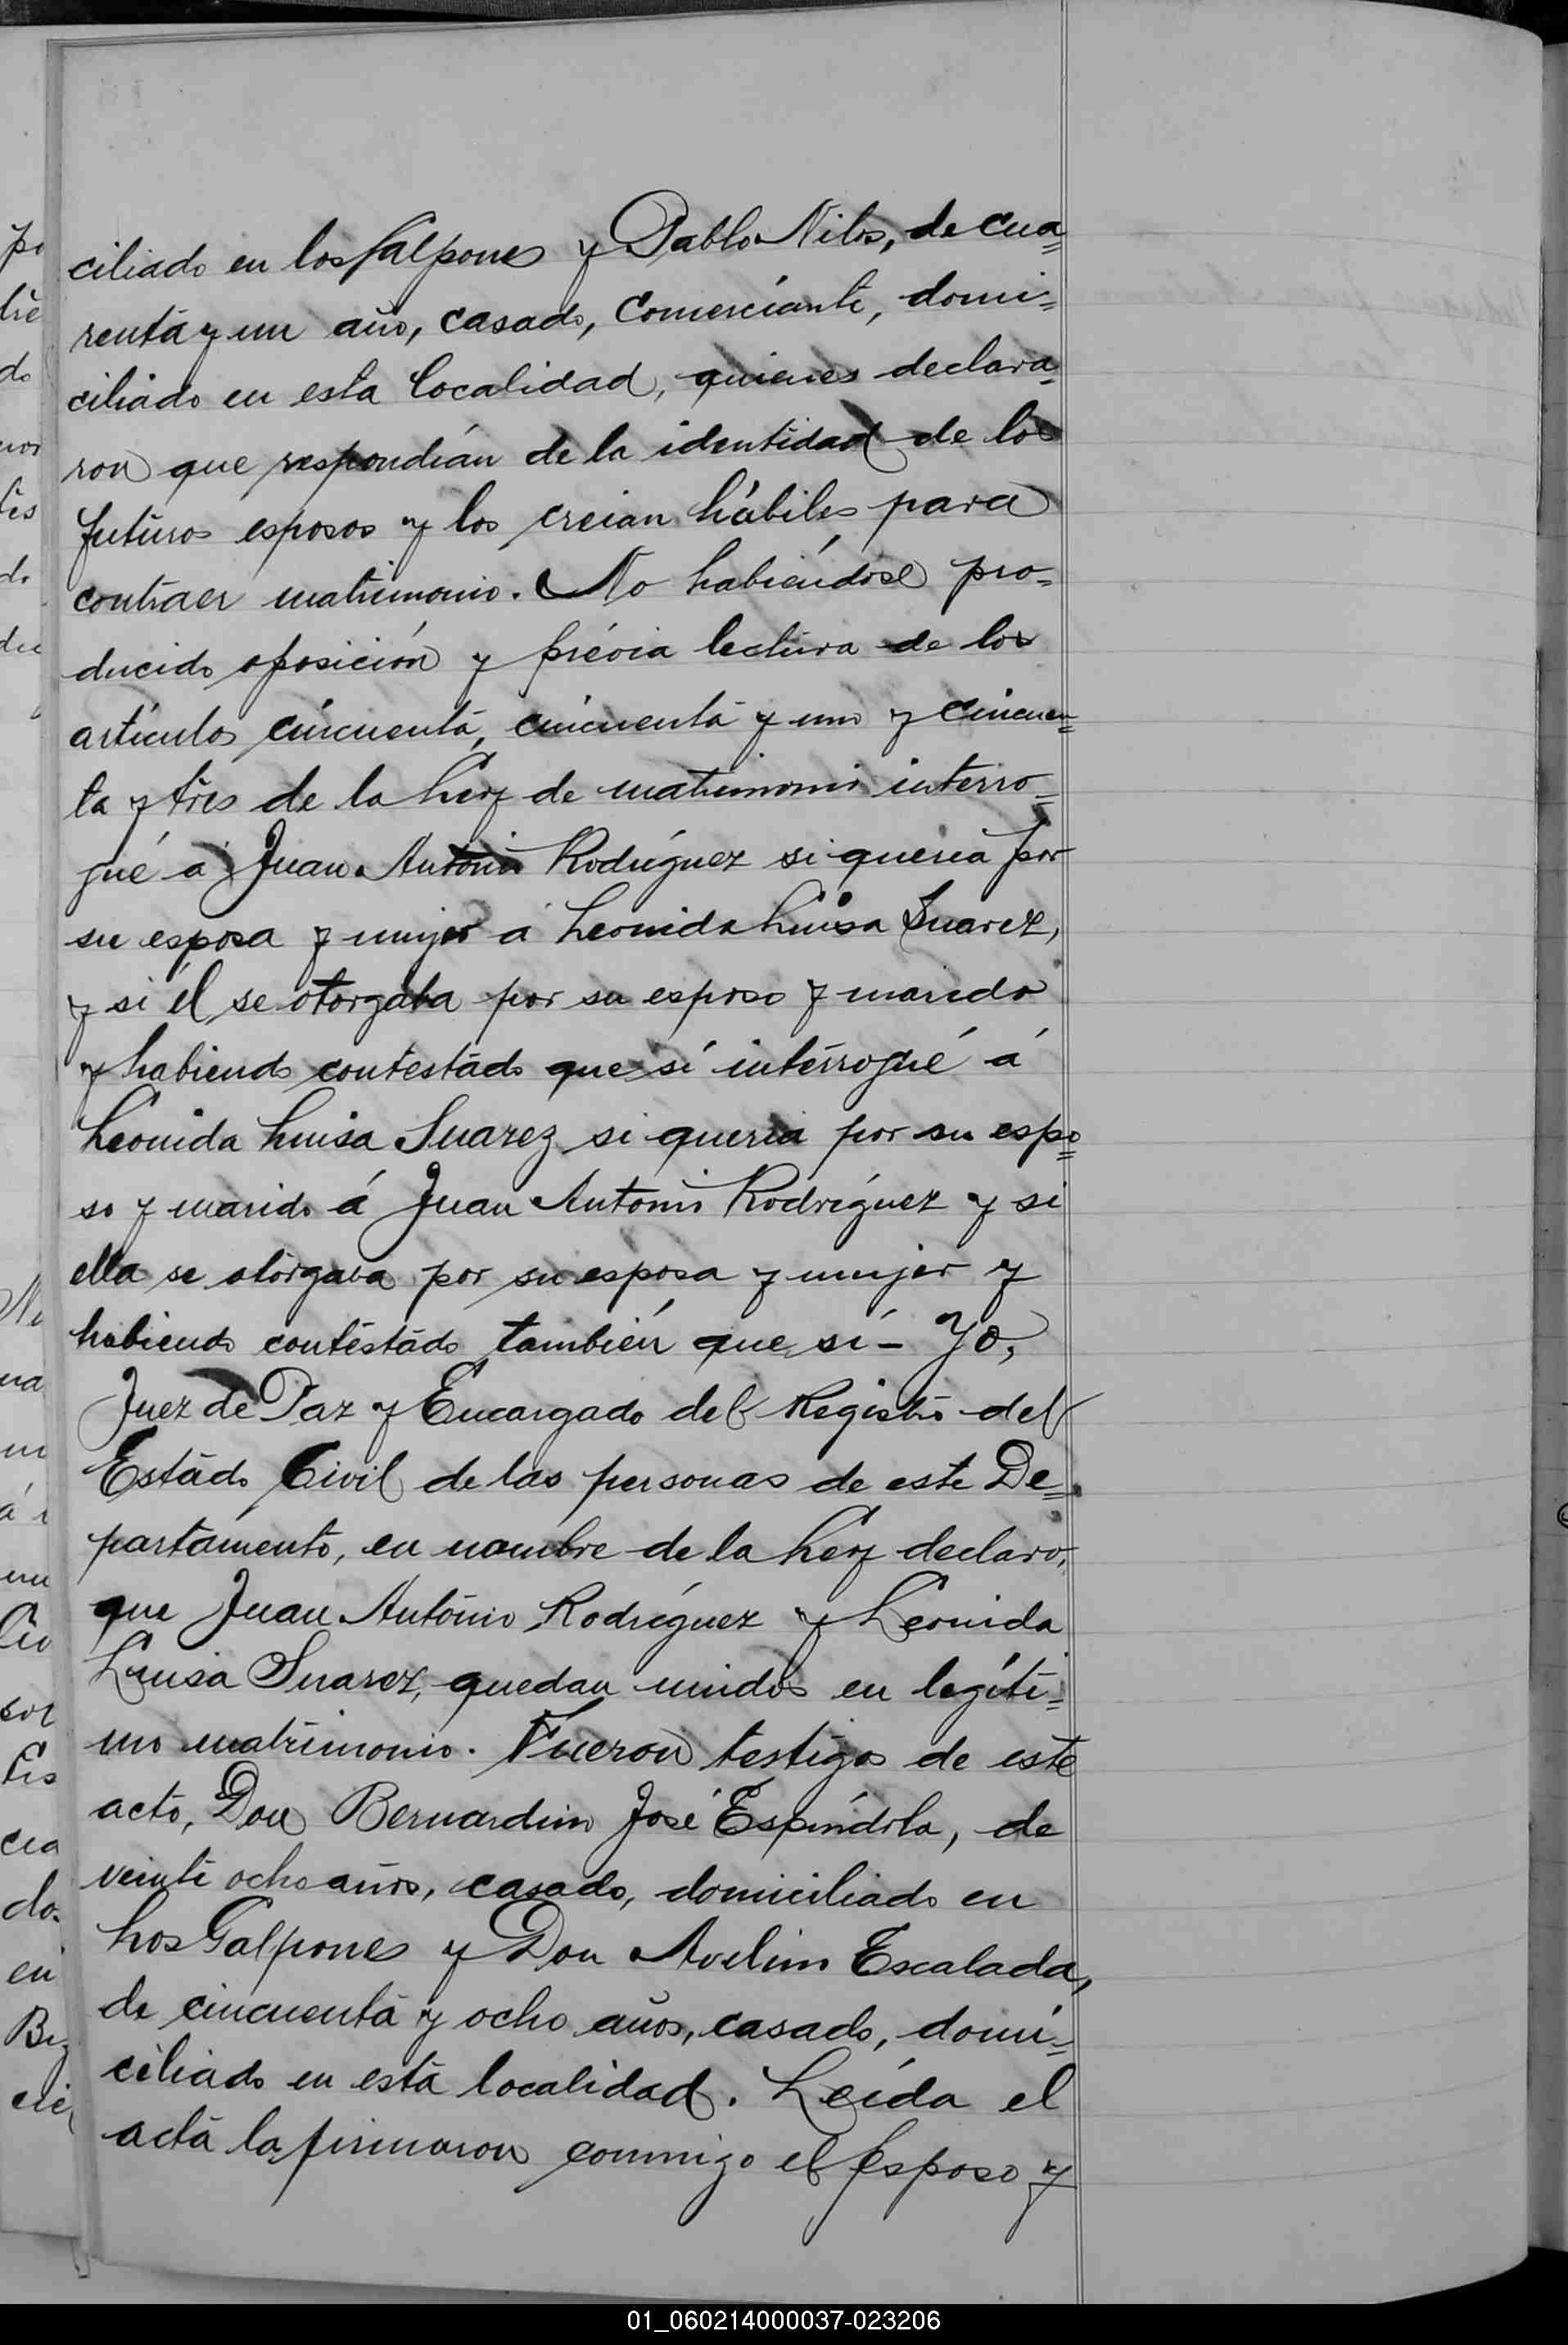 ciliado en los Galpones y Pablo Nilos, de cua=
renta y un año, casado, Comerciante, domi=
ciliado en esta localidad, quienes declara=
ron que respondían de la identidad de los
futuros esposos y los creian hábiles para
contraer matrimonio. No habiéndose pro=
ducido oposición y prévia lectura de los
artículos cincuenta, cincuenta y uno y cincuen=
ta y tres de la Ley de matrimonio interro=
gué a Juan Antonio Rodríguez si quería por
su esposa y mujer a Leonida Luisa Suarez,
y si él se otorgaba por su esposo y marido
y habiendo contestado que sí interrogué á
Leonida Luisa Suarez si quería por su espo=
so y marido á Juan Antonio Rodríguez y si
ella se otorgava por su esposa y mujer y
habiendo contestado también que sí - Yo,
Juez de Paz y Encargado del Registro del
Estado Civil de las personas de este De=
partamento, en nombre de la Ley declaro,
que Juan Antonio Rodríguez y Leonida
Luisa Suarez, quedan unidos en legíti=
mo matrimonio. Fueron testigos de este
acto, Don Bernardino José Espíndola, de
veinte ocho años, casado, domiciliado en
Los Galpones y Don Avelino Escalada,
de cincuenta y ocho años, casado, domi=
ciliado en esta localidad. Leída el
acta la firmaron conmigo el Esposo y
01_060214000037-023206